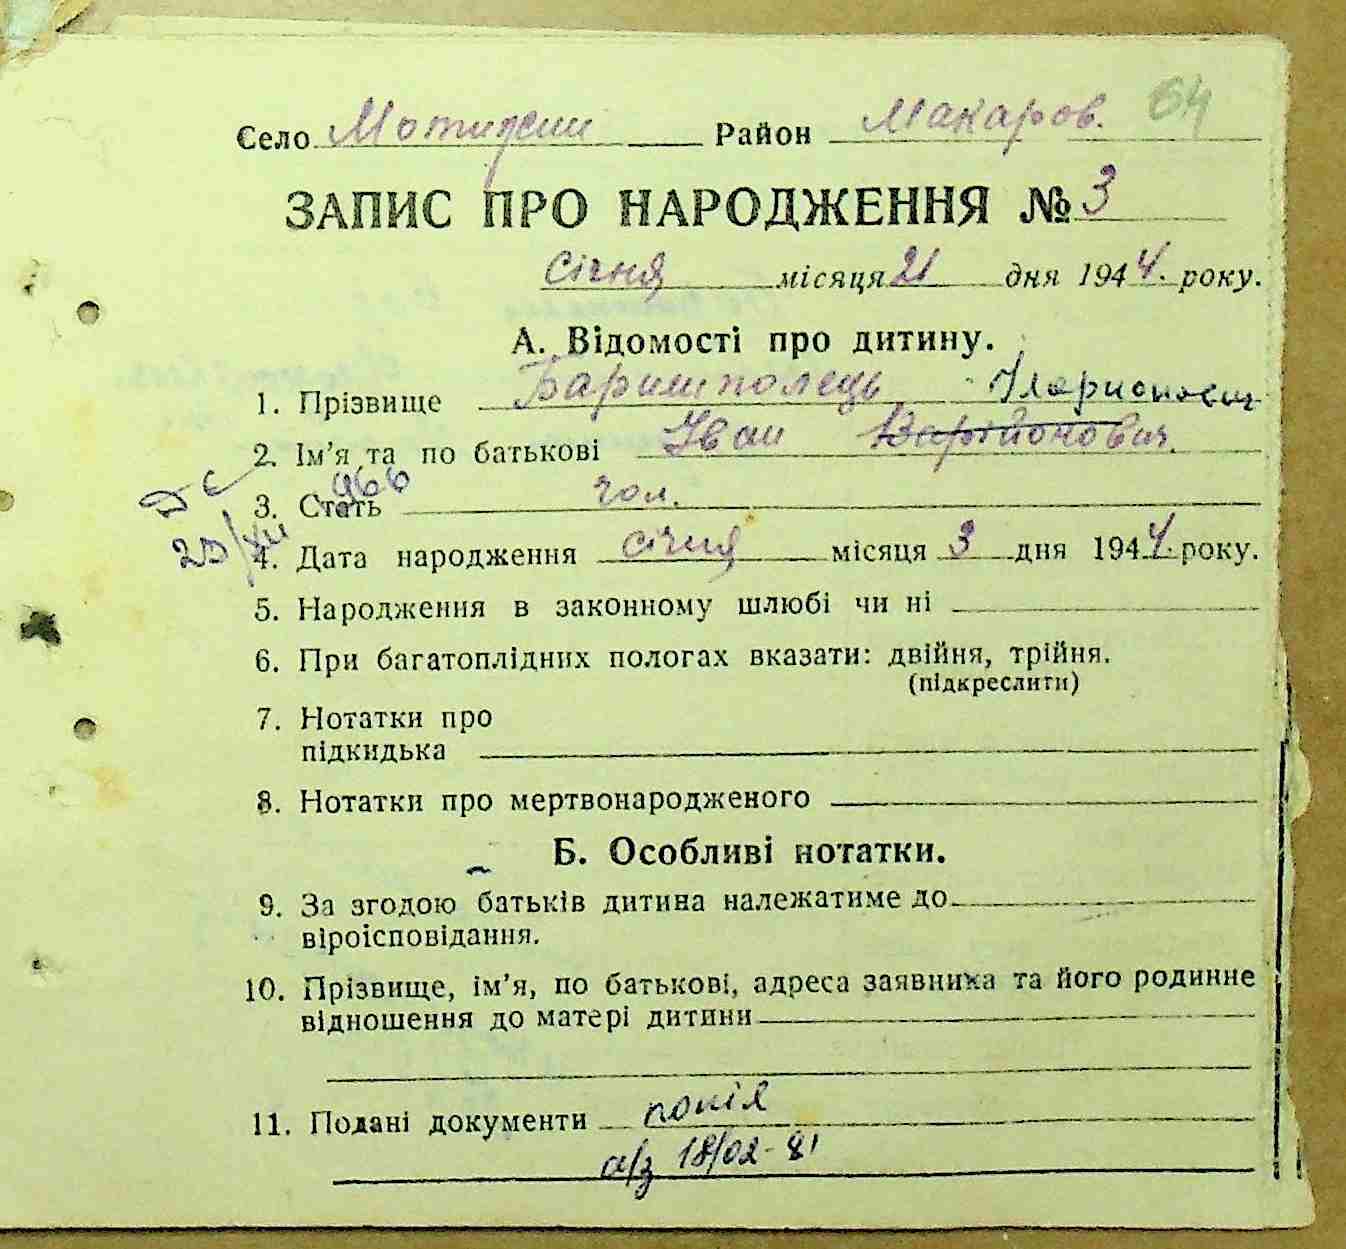 64
Село Мотижин Район Макаров.
ЗАПИС ПРО НАРОДЖЕННЯ № 3
січня місяця 21 дня 1944. року.
А. Відомості про дитину.
Іларионович
1. Прізвище Баришполець
2. Ім'я та по батькові Іван Варійонович.
966
3. Стать чол.
4. Дата народження січня місяця 3 дня 1944. року.
5. Народження в законному шлюбі чи ні
6. При багатоплідних пологах вказати: двійня, трійня.
(підкреслити)
7. Нотатки про
підкидька
8. Нотатки про мертвонародженого
Б. Особливі нотатки.
9. За згодою батьків дитина належатиме до
віроісповідання.
10. Прізвище, ім'я, по батькові, адреса заявника та його родинне
відношення до матері дитини
11. Подані документи копія
а/з 18/02-81